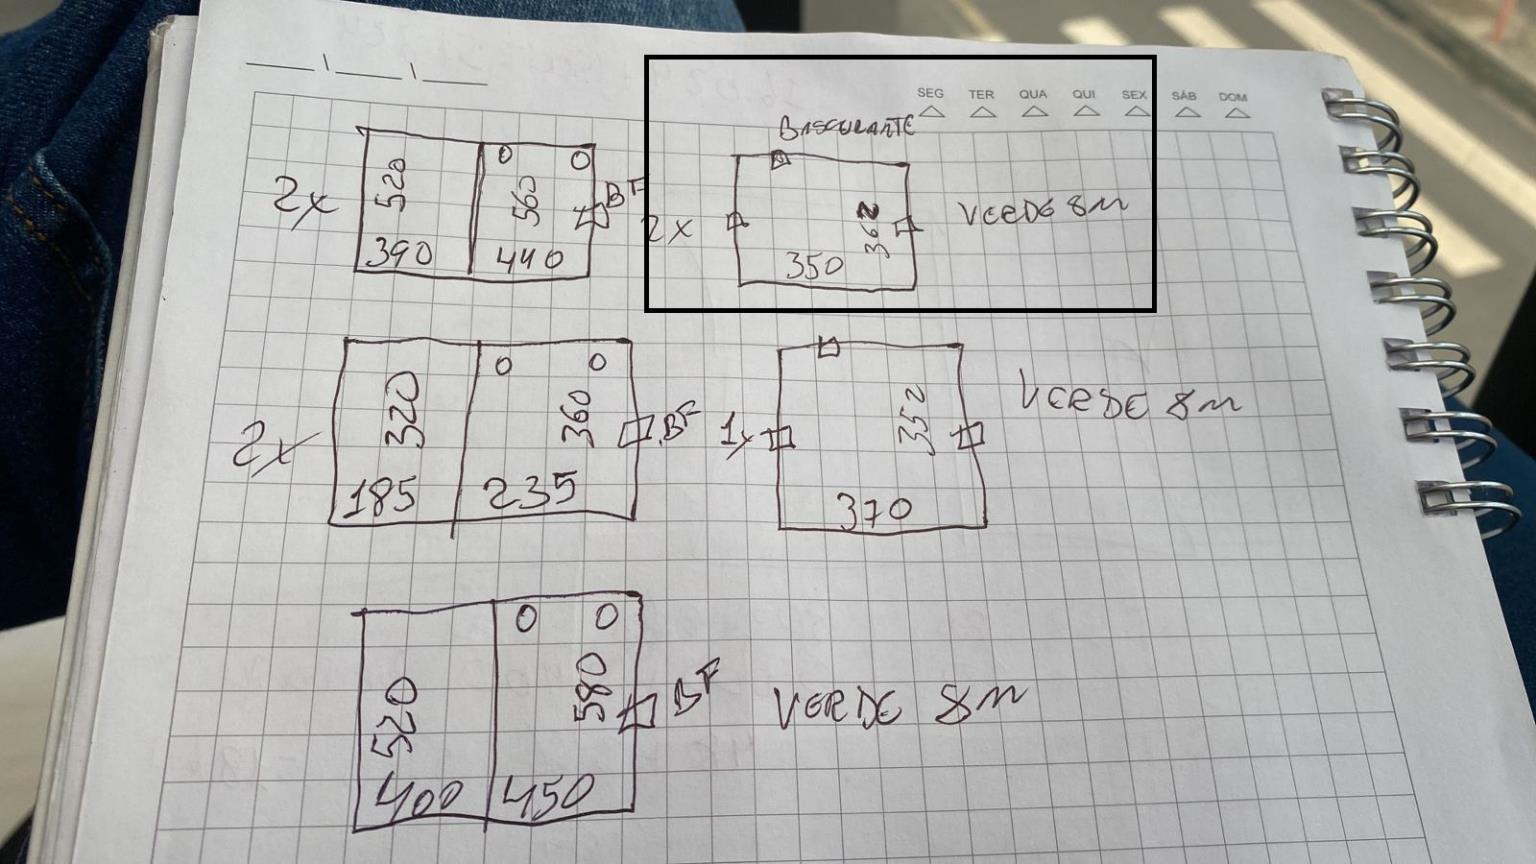 SEG TER QUA QUI SEX SÁB DOM
BASCULANTE
2x 520 560 BF
390 440
2x 362 VERDE 8m
350
2x 320 360 BF
185 235
1x 352 VERDE 8m
370
520 580 BF VERDE 8m
400 450